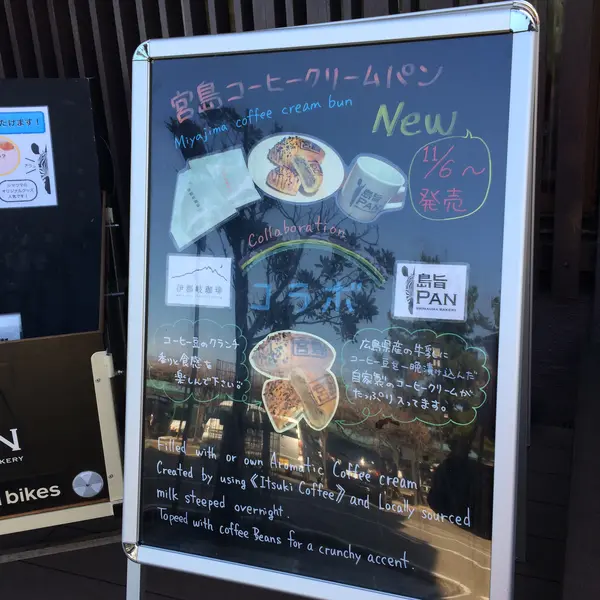 宮島コーヒークリームパン
Miyajima coffee cream bun
New
11/6〜
発売
島旨
PAN
Collaboration
コラボ
伊都岐珈琲
島旨
PAN
コーヒー豆のクランチ
香りと食感を
楽しんで下さい
広島県産の牛乳に
コーヒー豆を一晩漬け込んだ
自家製のコーヒークリームが
たっぷり入ってます。
Filled with or own Aromatic Coffee cream!
Created by using 《Itsuki Coffee》 and Locally sourced
milk steeped overnight.
Topeed with coffee Beans for a crunchy accent.
だけます!
N
KERY
bikes